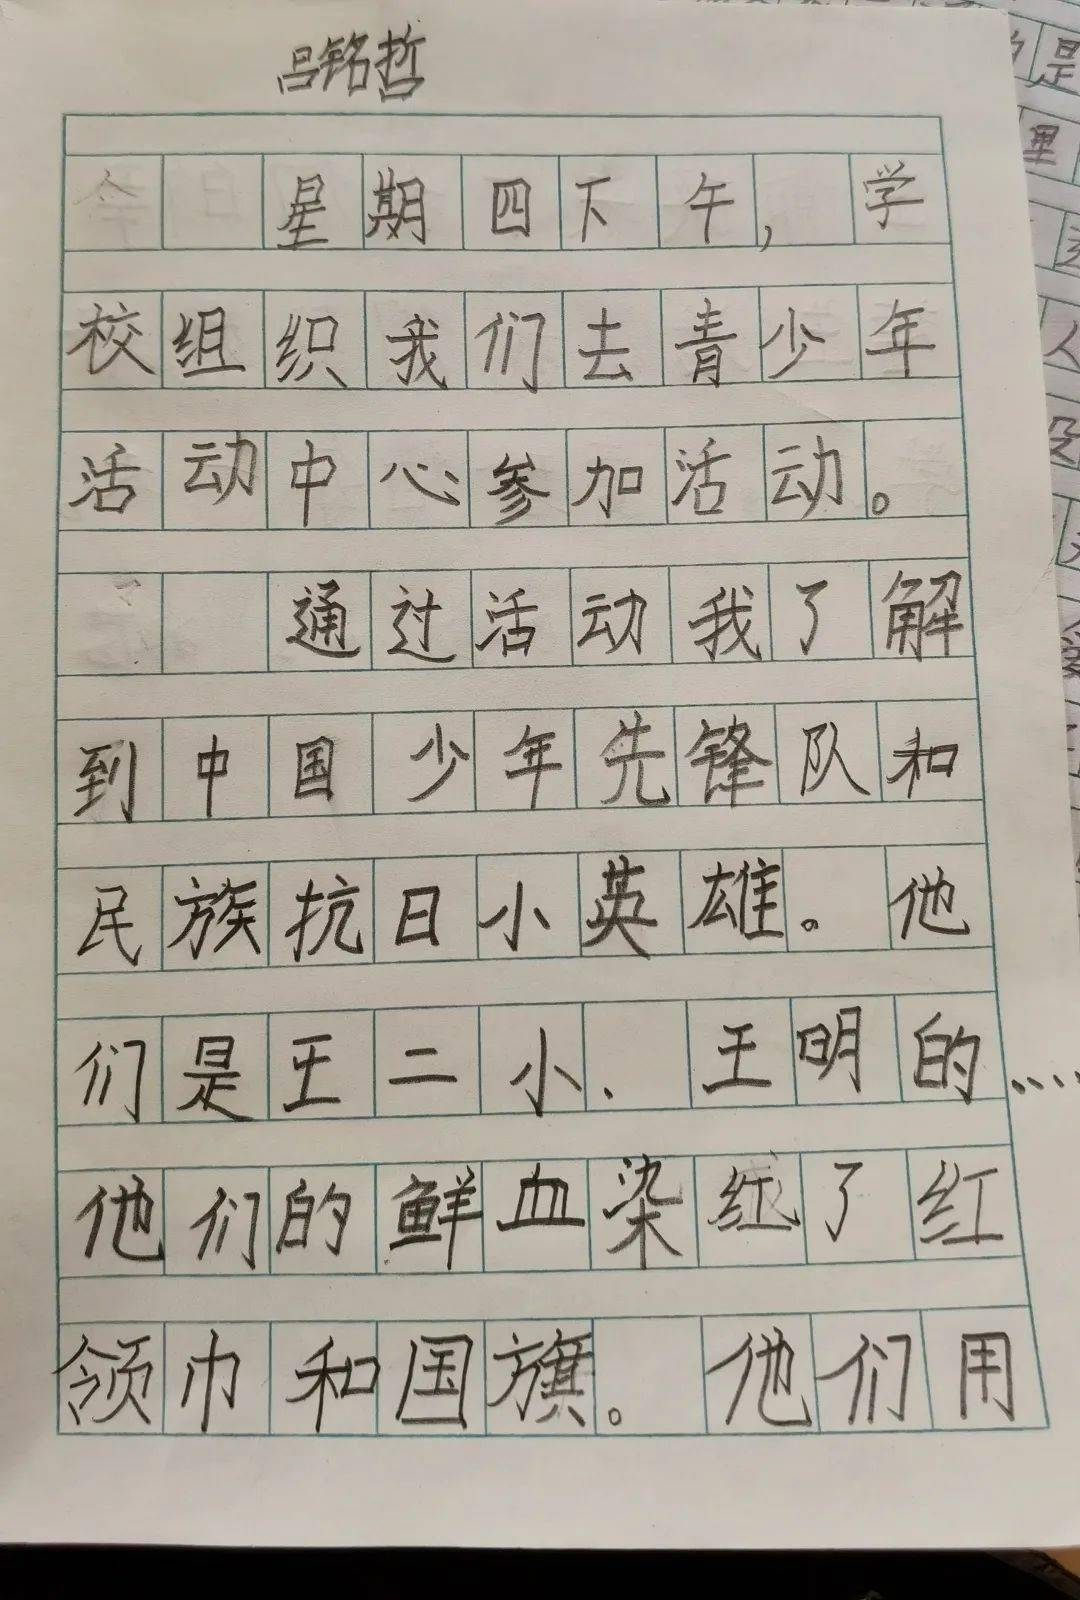 吕铭哲
星期四下午，学
校组织我们去青少年
活动中心参加活动。
通过活动我了解
到中国少年先锋队和
民族抗日小英雄。他
们是王二小、王明的....
他们的鲜血染红了红
领巾和国旗。他们用
是
里
人